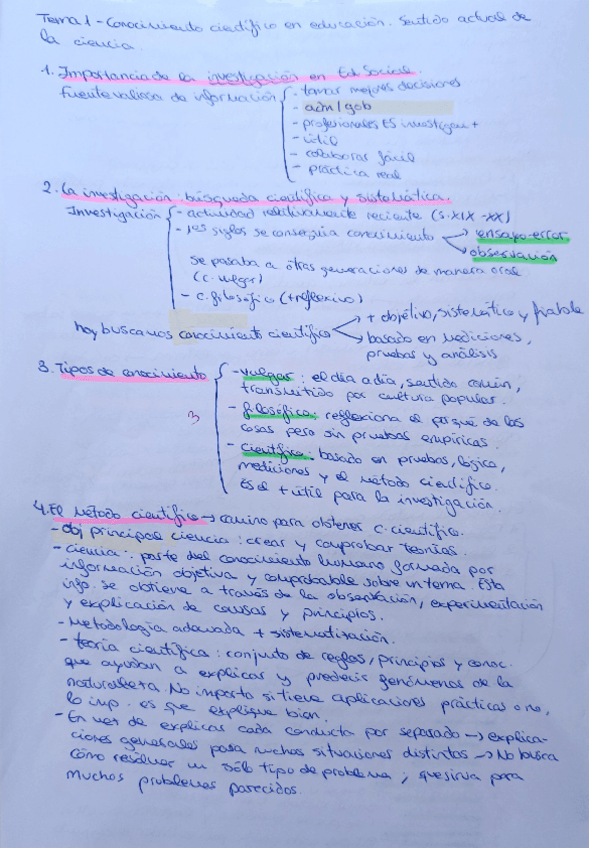 Tema 1 - Conocimiento científico en educación. Sentido actual de
la ciencia.
1. Importancia de la investigación en Ed. Social.
Fuente valiosa de información
- tomar mejores decisiones
- adm/gob
- profesionales ES investiguen +
- útil
- colaborar fácil
- práctica real
2. La investigación: búsqueda científica y sistemática.
Investigación
- actividad relativamente reciente (s. XIX-XX)
- 1os siglos se conseguía conocimiento → ensayo-error
→ observación
se pasaba a otras generaciones de manera oral
(c. vulgar)
- c. filosófico (+ reflexivo)
hoy buscamos conocimiento científico → + objetivo, sistemático y fiable
→ basado en mediciones,
pruebas y análisis
3. Tipos de conocimiento
- vulgar: el día a día, sentido común,
transmitido por cultura popular.
3
- filosófico: reflexiona el porqué de las
cosas pero sin pruebas empíricas.
- Científico: basado en pruebas, lógica,
mediciones y el método científico.
Es el + útil para la investigación.
4. El método científico → camino para obtener c. científico.
- Obj principal ciencia: crear y comprobar teorías.
- Ciencia: parte del conocimiento humano formada por
información objetiva y comprobable sobre un tema. Esta
info. se obtiene a través de la observación, experimentación
y explicación de causas y principios.
- Metodología adecuada + sistematización.
- Teoría científica: conjunto de reglas, principios y conoc.
que ayudan a explicar y predecir fenómenos de la
naturaleza. No importa si tiene aplicaciones prácticas o no,
lo imp. es que explique bien.
- En vez de explicar cada conducta por separado → explica-
ciones generales para muchas situaciones distintas → No busca
cómo resolver un sólo tipo de problema; que sirva para
muchos problemas parecidos.